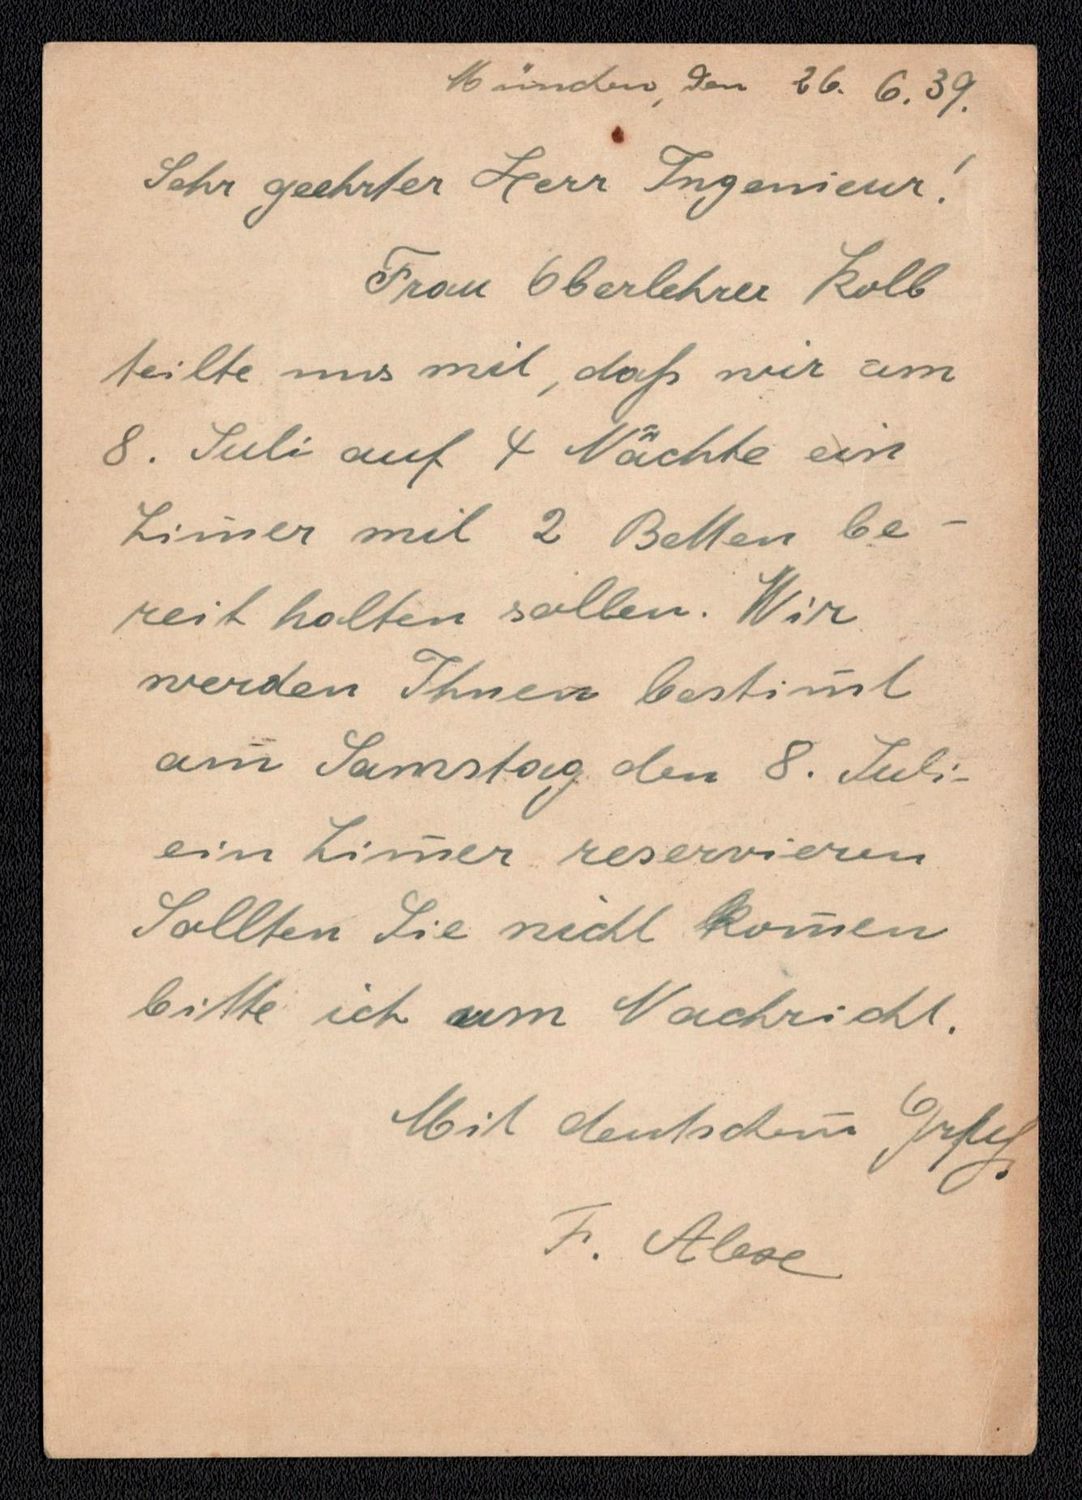 Münden, den 26. 6. 39.
Sehr geehrter Herr Ingenieur!
Frau Oberlehrer Kolb
teilte uns mit, daß wir am
8. Juli auf 4 Nächte ein
Zim̄er mit 2 Betten be-
reit halten sollen. Wir
werden Ihnen bestim̄t
am̄ Samstag den 8. Juli
ein Zim̄er reservieren
Sollten Sie nicht kom̄en
bitte ich um Nachricht.
Mit deutschem̄ Gruß
F.